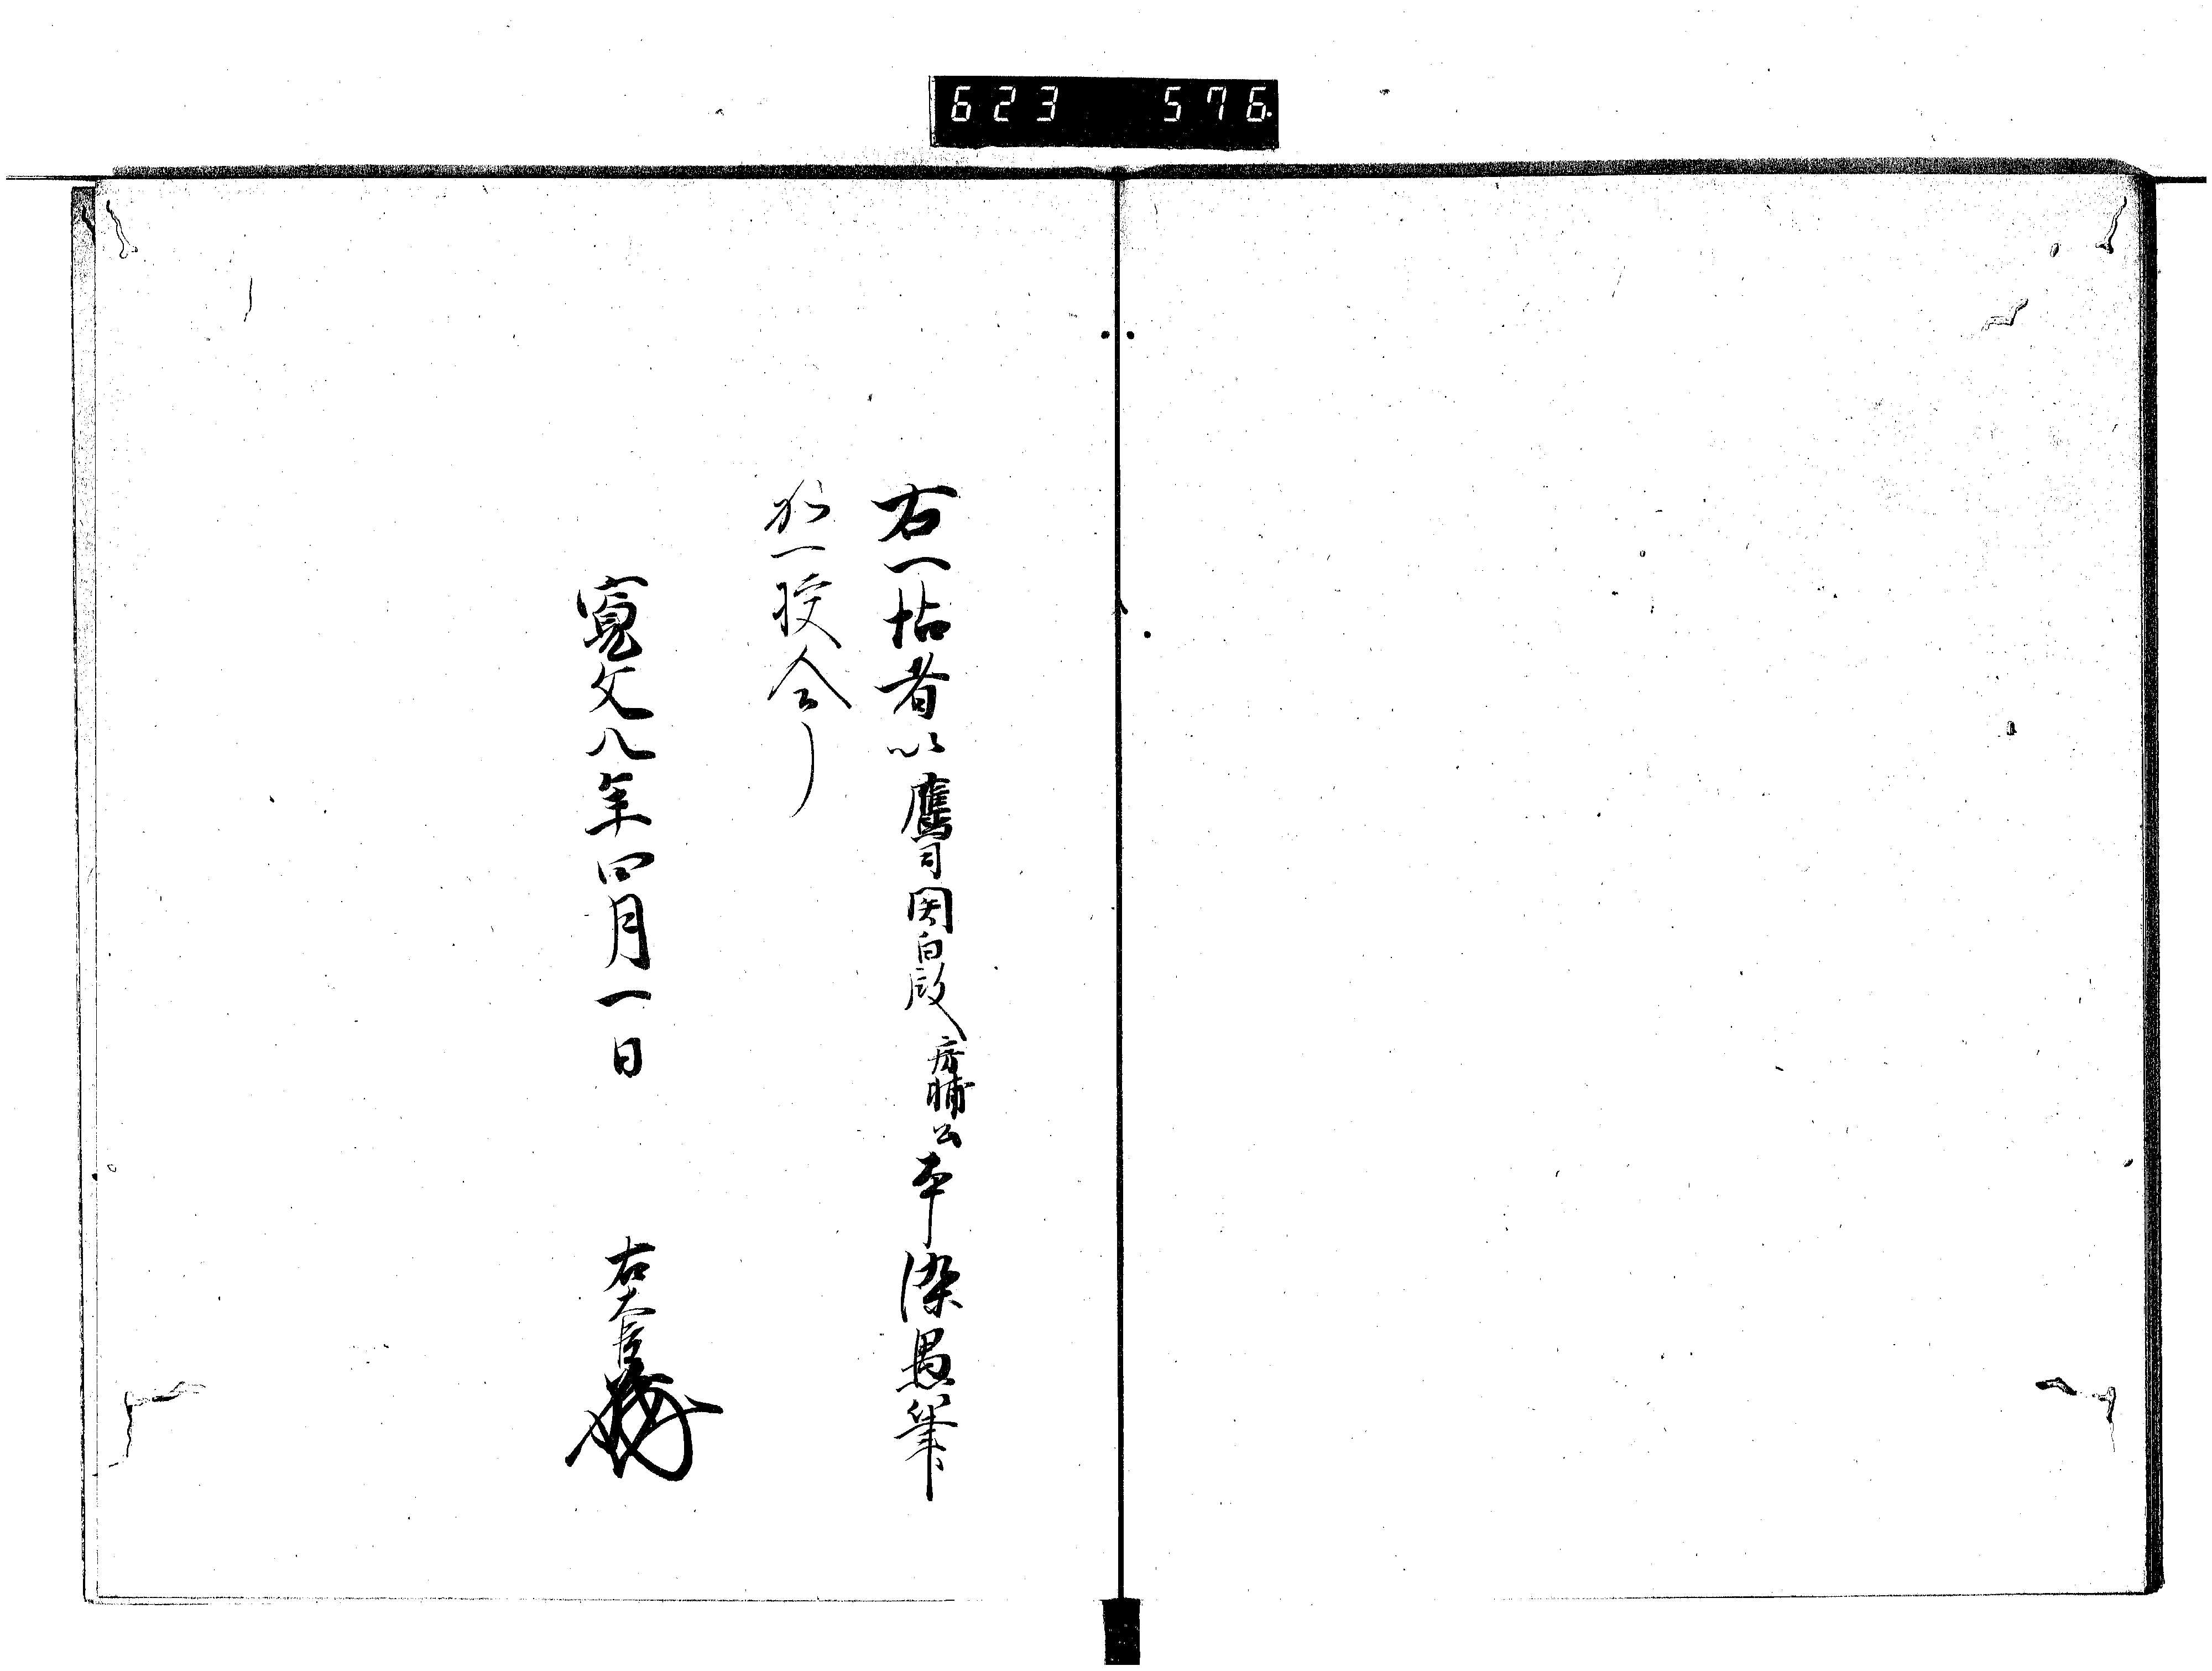 623 576
右一帖者以鷹司関白殿房輔公本染愚筆
如一校合了
寛文八年四月一日
右大臣